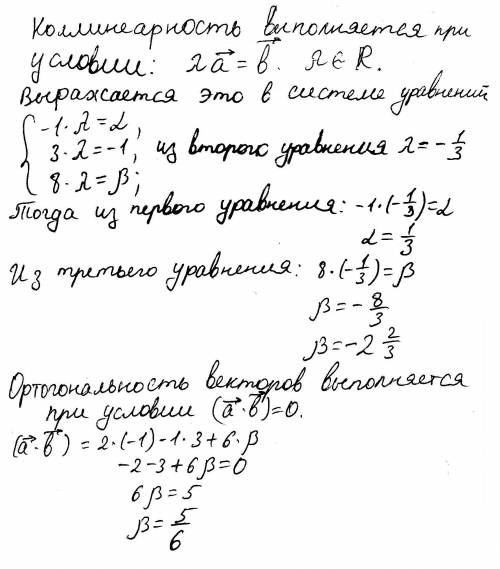 Коллинеарность выполняется при
условии: λa⃗ = b⃗. λ∈R.
Выражается это в системе уравнений
{ -1·λ=α,
3·λ=-1, из второго уравнения λ=-1/3
8·λ=β;
Тогда из первого уравнения: -1·(-1/3)=α
α=1/3
Из третьего уравнения: 8·(-1/3)=β
β=-8/3
β=-2 2/3
Ортогональность векторов выполняется
при условии (a⃗·b⃗)=0.
(a⃗·b⃗)=2·(-1)-1·3+6·β
-2-3+6β=0
6β=5
β=5/6